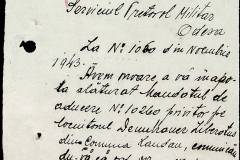 Serviciul Pretoral Militar
Odesa
La Nº 1060 din Noembrie
1943.
Avem onoare a vă înapoia
alăturat Mandatul de
aducere Nº 10260 privitor pe
locuitorul
din comuna Landau,